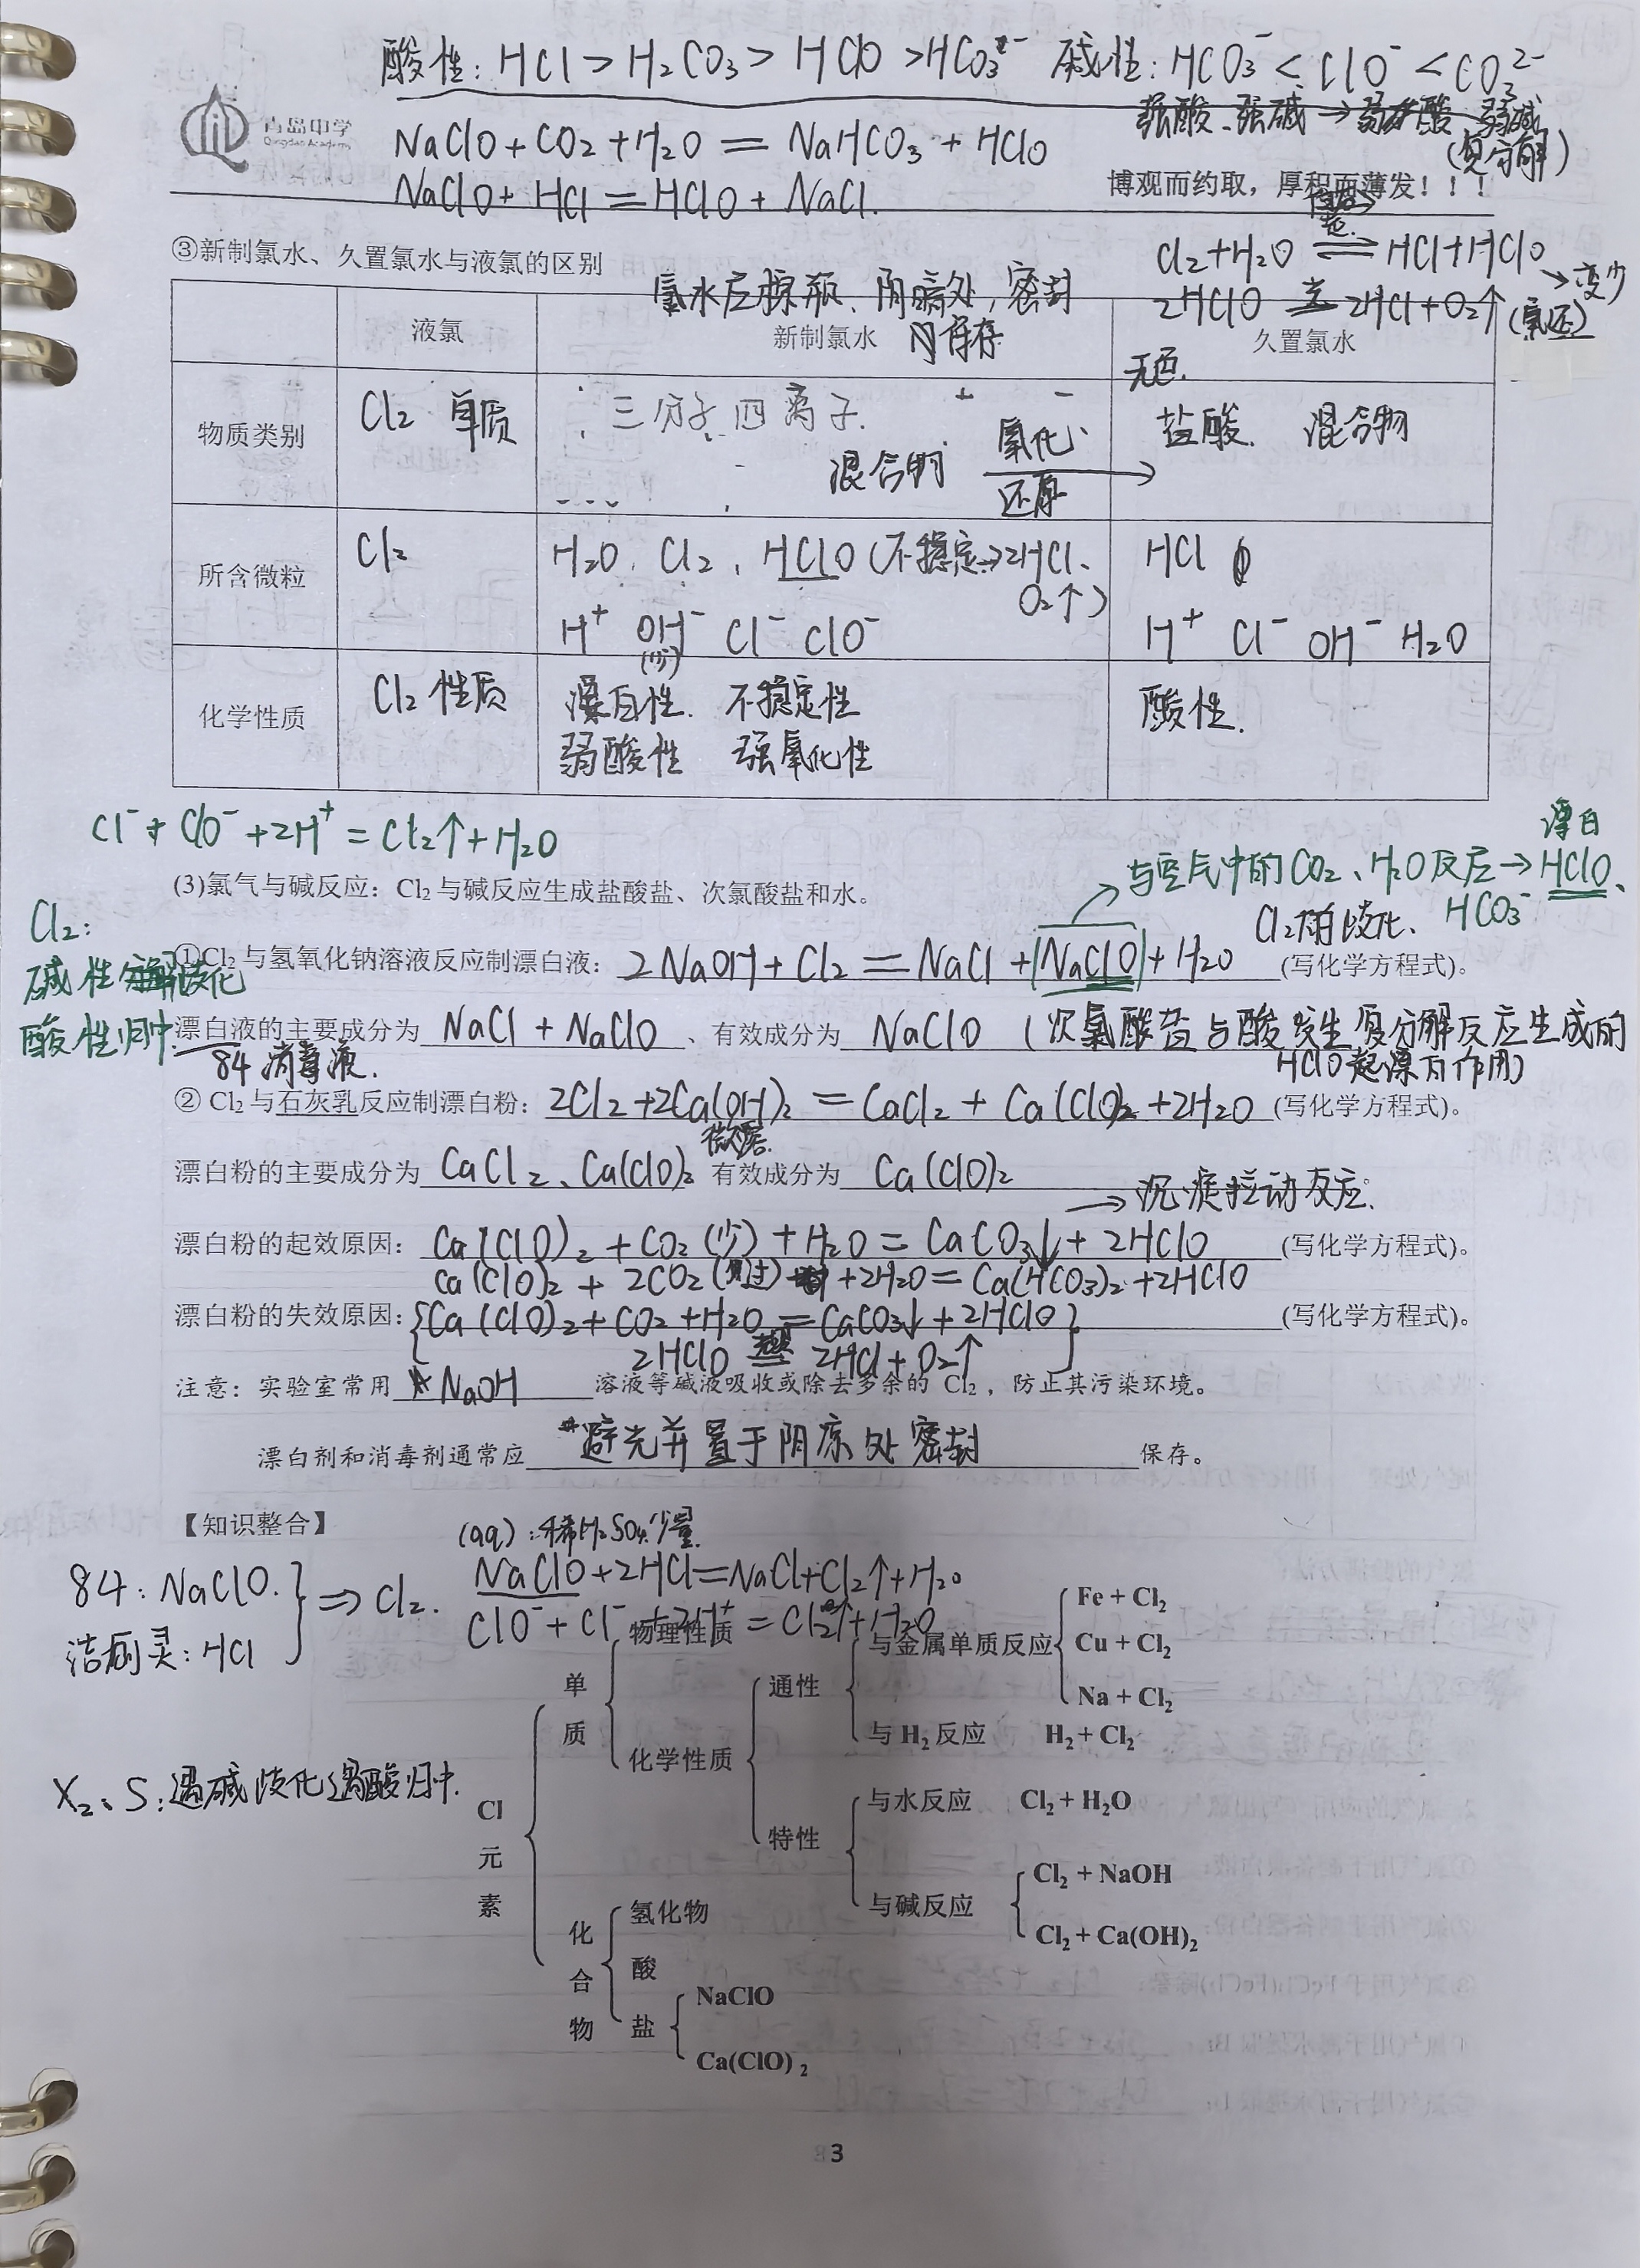 酸性：HCl > H₂CO₃ > HClO > HCO₃⁻ 碱性：HCO₃⁻ < ClO⁻ < CO₃²⁻
青岛中学
Qingdao Academy
强酸、强碱 → 弱酸、弱碱
(复分解)
NaClO + CO₂ + H₂O = NaHCO₃ + HClO
NaClO + HCl = HClO + NaCl.
博观而约取，厚积而薄发！！！
③新制氯水、久置氯水与液氯的区别
Cl₂ + H₂O ⇌ HCl + HClO
→ 变少
氯水应棕瓶、阴暗处，密封
保存
2HClO 光= 2HCl + O₂↑ (氧还)
液氯 新制氯水 久置氯水
无色.
物质类别
Cl₂ 单质
三分子四离子.
混合物 氧化、还原 →
盐酸. 混合物
所含微粒
Cl₂
H₂O、Cl₂、HClO (不稳定→2HCl、O₂↑)
H⁺ OH⁻ Cl⁻ ClO⁻
(少)
HCl
H⁺ Cl⁻ OH⁻ H₂O
化学性质
Cl₂ 性质
漂白性. 不稳定性
弱酸性 强氧化性
酸性.
Cl⁻ + ClO⁻ + 2H⁺ = Cl₂↑ + H₂O
漂白
→ 与空气中的CO₂、H₂O反应 → HClO、
HCO₃⁻
(3)氯气与碱反应：Cl₂与碱反应生成盐酸盐、次氯酸盐和水。
Cl₂:
碱性歧化
酸性归中.
Cl₂的歧化、
①Cl₂与氢氧化钠溶液反应制漂白液：2NaOH + Cl₂ = NaCl + NaClO + H₂O (写化学方程式)。
漂白液的主要成分为 NaCl + NaClO 、有效成分为 NaClO (次氯酸盐与酸发生复分解反应生成的
HClO起漂白作用)
84消毒液.
② Cl₂与石灰乳反应制漂白粉：2Cl₂ + 2Ca(OH)₂ = CaCl₂ + Ca(ClO)₂ + 2H₂O (写化学方程式)。
微溶.
漂白粉的主要成分为 CaCl₂、Ca(ClO)₂ 有效成分为 Ca(ClO)₂
→ 沉淀拉动反应.
漂白粉的起效原因：Ca(ClO)₂ + CO₂(少) + H₂O = CaCO₃↓ + 2HClO (写化学方程式)。
Ca(ClO)₂ + 2CO₂(过) + 2H₂O = Ca(HCO₃)₂ + 2HClO
漂白粉的失效原因：{Ca(ClO)₂ + CO₂ + H₂O = CaCO₃↓ + 2HClO} (写化学方程式)。
2HClO = 2HCl + O₂↑
注意：实验室常用 ☆NaOH 溶液等碱液吸收或除去多余的 Cl₂，防止其污染环境。
漂白剂和消毒剂通常应 *避光并置于阴凉处密封 保存。
【知识整合】
(aq)：稀H₂SO₄少量.
84：NaClO.
洁厕灵：HCl
} ⇒ Cl₂.
NaClO + 2HCl = NaCl + Cl₂↑ + H₂O
ClO⁻ + Cl⁻ + 2H⁺ = Cl₂↑ + H₂O
X₂、S：遇碱歧化遇酸归中.
Cl元素
单质
物理性质
化学性质
通性
与金属单质反应
Fe + Cl₂
Cu + Cl₂
Na + Cl₂
与 H₂ 反应 H₂ + Cl₂
特性
与水反应 Cl₂ + H₂O
与碱反应
Cl₂ + NaOH
Cl₂ + Ca(OH)₂
化合物
氢化物
酸
盐
NaClO
Ca(ClO)₂
3